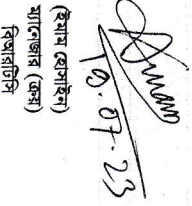 10.07.23
(ইমাম হোসাইন)
ম্যানেজার (ক্রয়)
বিআরটিসি